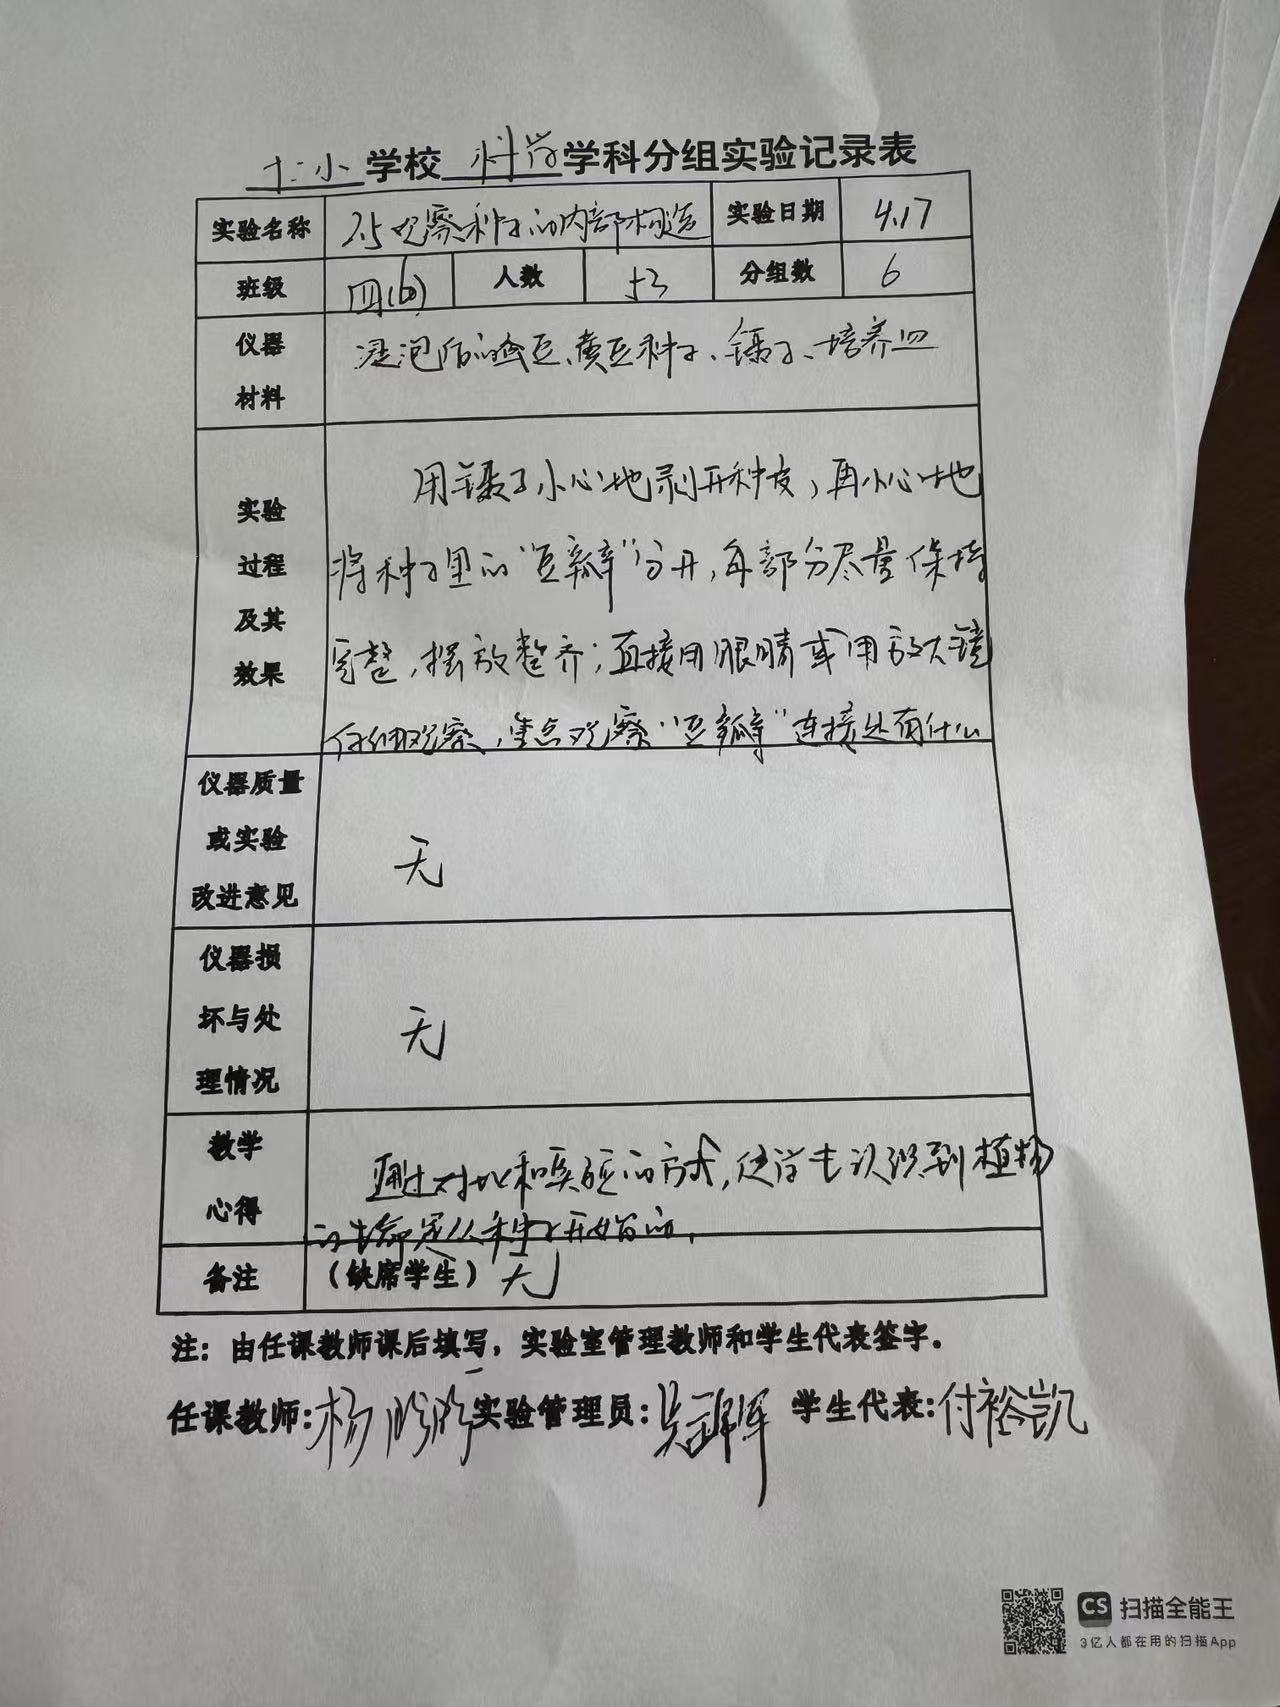 十二小学校 科学学科分组实验记录表
实验名称 2.5观察种子的内部构造 实验日期 4.17
班级 四(6) 人数 53 分组数 6
仪器材料 浸泡后的蚕豆、黄豆种子、镊子、培养皿
实验过程及其效果
用镊子小心地剥开种皮，再小心地
将种子里的“豆瓣”分开，每部分尽量保持
完整，摆放整齐；直接用眼睛或用放大镜
仔细观察，重点观察“豆瓣”连接处有什么
仪器质量或实验改进意见 无
仪器损坏与处理情况 无
教学心得
通过对比和实验的方式，使学生认识到植物
的生命是从种子开始的。
备注 （缺席学生）无
注：由任课教师课后填写，实验室管理教师和学生代表签字。
任课教师:杨 实验管理员:吴 学生代表:付裕凯
CS 扫描全能王
3亿人都在用的扫描App